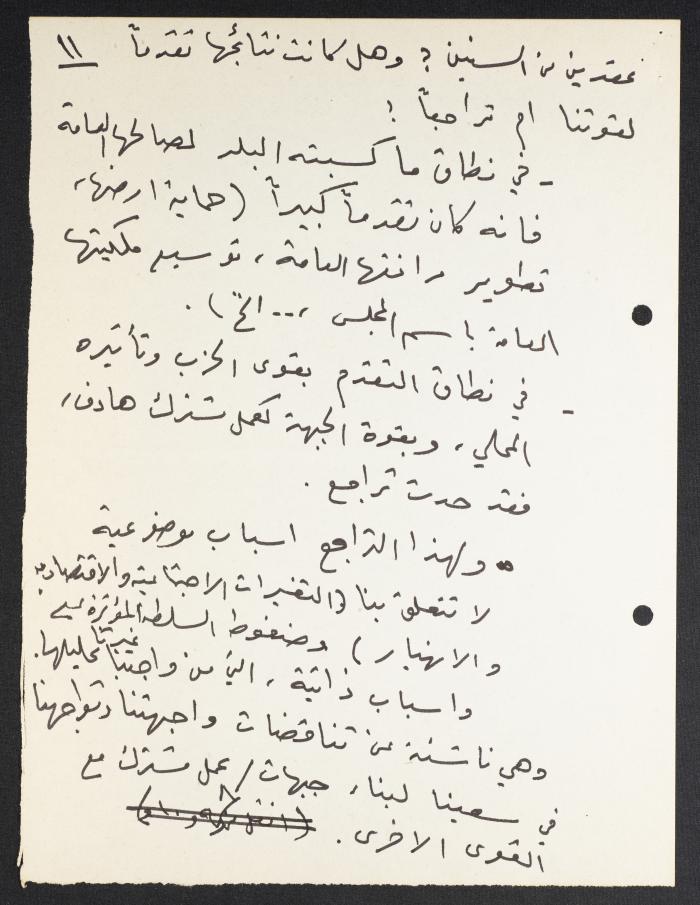 ١١
عقدين من السنين ؟ وهل كانت نتائجها تقدماً
لقوتنا ام تراجعاً ؟
- في نطاق ما كسبته البلد لمصالحها العامة
فانه كان تقدماً كبيراً (حماية ارضها،
تطوير مرافقها العامة ، توسيع ملكيتها
العامة باسم المجلس ،... الخ ) .
- في نطاق التقدم بقوى الحزب وتأثيره
المحلي ، وبقوة الجبهة كعمل مشترك هادف،
فقد حدث تراجع .
• ولهذا التراجع اسباب موضوعية
لا تتعلق بنا (التغيرات الاجتماعية والاقتصادية
والانهيار ) وضغوط السلطة المؤثرة على غيرنا
واسباب ذاتية ، التي من واجبنا تحليلها.
وهي ناشئة عن تناقضات واجهتنا وتواجهنا
في سعينا لبناء جبهات / عمل مشترك مع
القوى الاخرى .